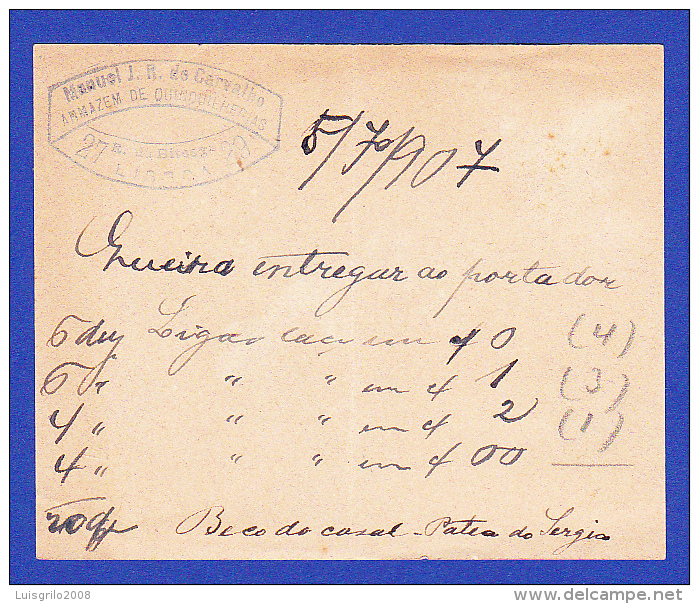 Manuel J. R. de Carvalho
ARMAZEM DE QUINQUILHERIAS
27 29
LISBOA
5/7º/907
Queira entregar ao portador
5 Ligas em 0 (4)
5 " " " em 1 (3)
4 " " " em 2 (1)
4 " " " em 00
20
Beco do casal - Patea do Sergio
Luisgrilo2008
www.delcampe.net